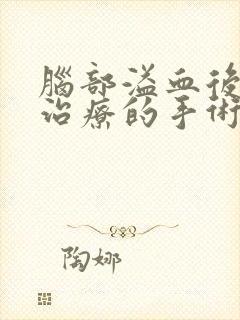 腦部溢血後
治療的手術
陶娜